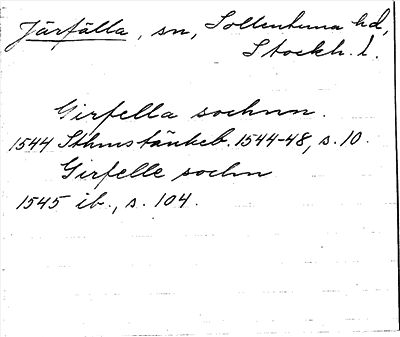 Järfälla, sn, Sollentuna hd,
Stockh. l.
Girfella sochnn.
1544 Sthmstänkeb. 1544-48, s. 10.
Girfelle sochn
1545 ib., s. 104.